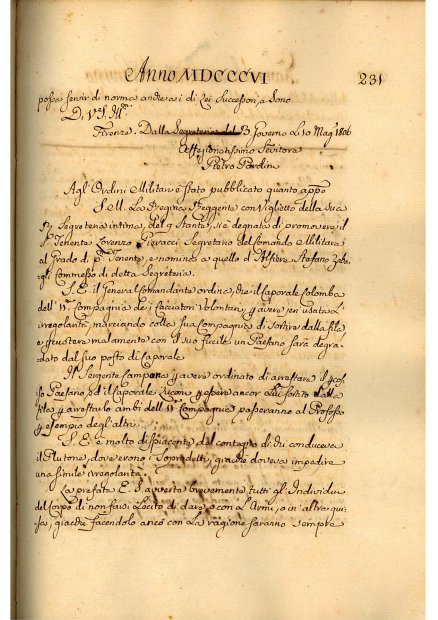 Anno MDCCCVI
231
possa servir di norma anche a i di Lei Successori, e Sono
D. V.S. Ill.
Firenze. Dalla Segreteria del B. Governo Li 10 Mag.° 1806
Affezionatissimo Servitore
Pietro Pardini
Agl'Ordini Militari è stato pubblicato quanto app.°
S. M. La Regina Reggente con Viglietto della Sua
Segreteria intima, del 9 Stante, si è degnata di promovere il
Tenente Lorenzo Pieracci Segretario del Comando Militare
al Grado di p.° Tenente, e nominò a quello d'Alfiere Stefano
commesso di detta Segreteria.
S. E. il General Comandante ordina, che il Caporale Colomba
dell' Compagnia de i Cacciatori Volontari, p avere, in usata L'
irregolarità, marciando colla sua Compagnia di Sortire dalla fila,
e percuotere malamente con il suo fucile un Paesano sarà degra-
dato dal suo posto di Caporale
Il Sergente Campana p avere ordinato di arrestare il
Paesano, ed il Caporale p essere ancor Lui sortito dalla
fila, p arrestarlo ambi dell' Compagnia passeranno al Profosso
p esempio degl'altri.
S. E. è molto dispiacente del contegno di chi conduceva
il Plutone, dove erano i Sopradetti, giacchè doveva impedire
una simile irregolarità.
La prefata E. S. avverte brevemente tutti gl'Individui
del Corpo di non farsi Lecito di dare, o con L'Armi, o in altra gui-
sa, giacchè facendolo anco con La ragione saranno sempre